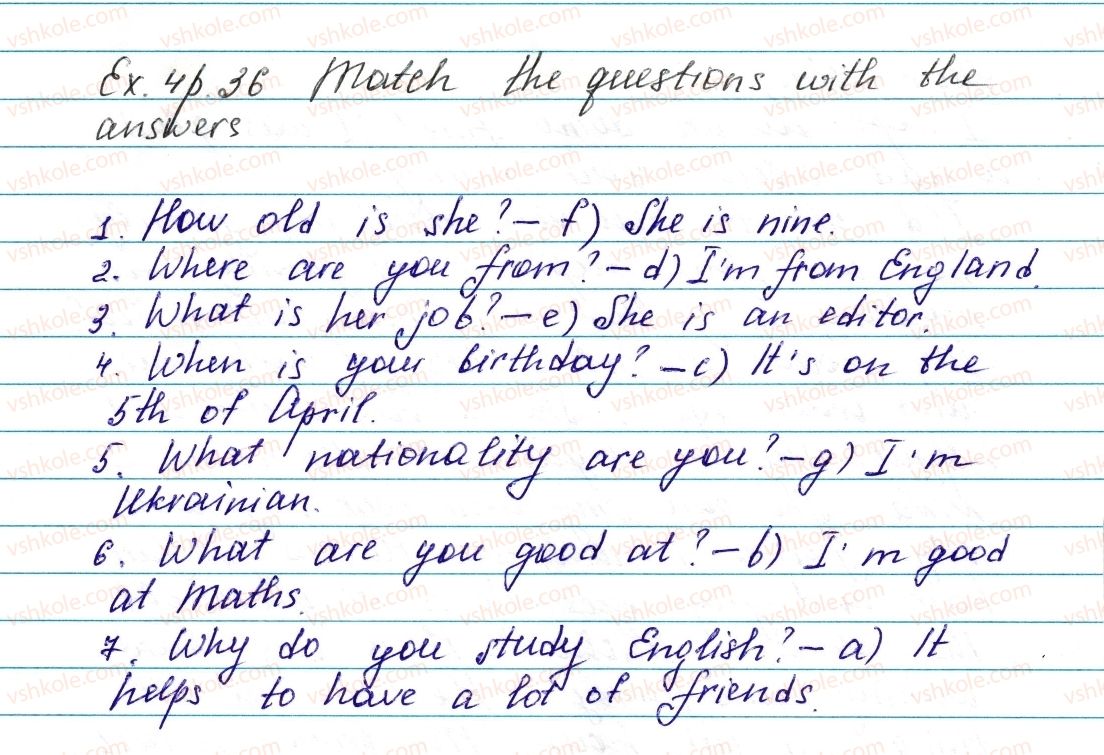 Ex. 4p. 36 Match the questions with the
answers
1. How old is she? – f) She is nine.
2. Where are you from? – d) I'm from England.
3. What is her job? – e) She is an editor.
4. When is your birthday? – c) It's on the
5th of April.
5. What nationality are you? – g) I'm
Ukrainian.
6. What are you good at? – b) I'm good
at Maths.
7. Why do you study English? – a) It
helps to have a lot of friends.